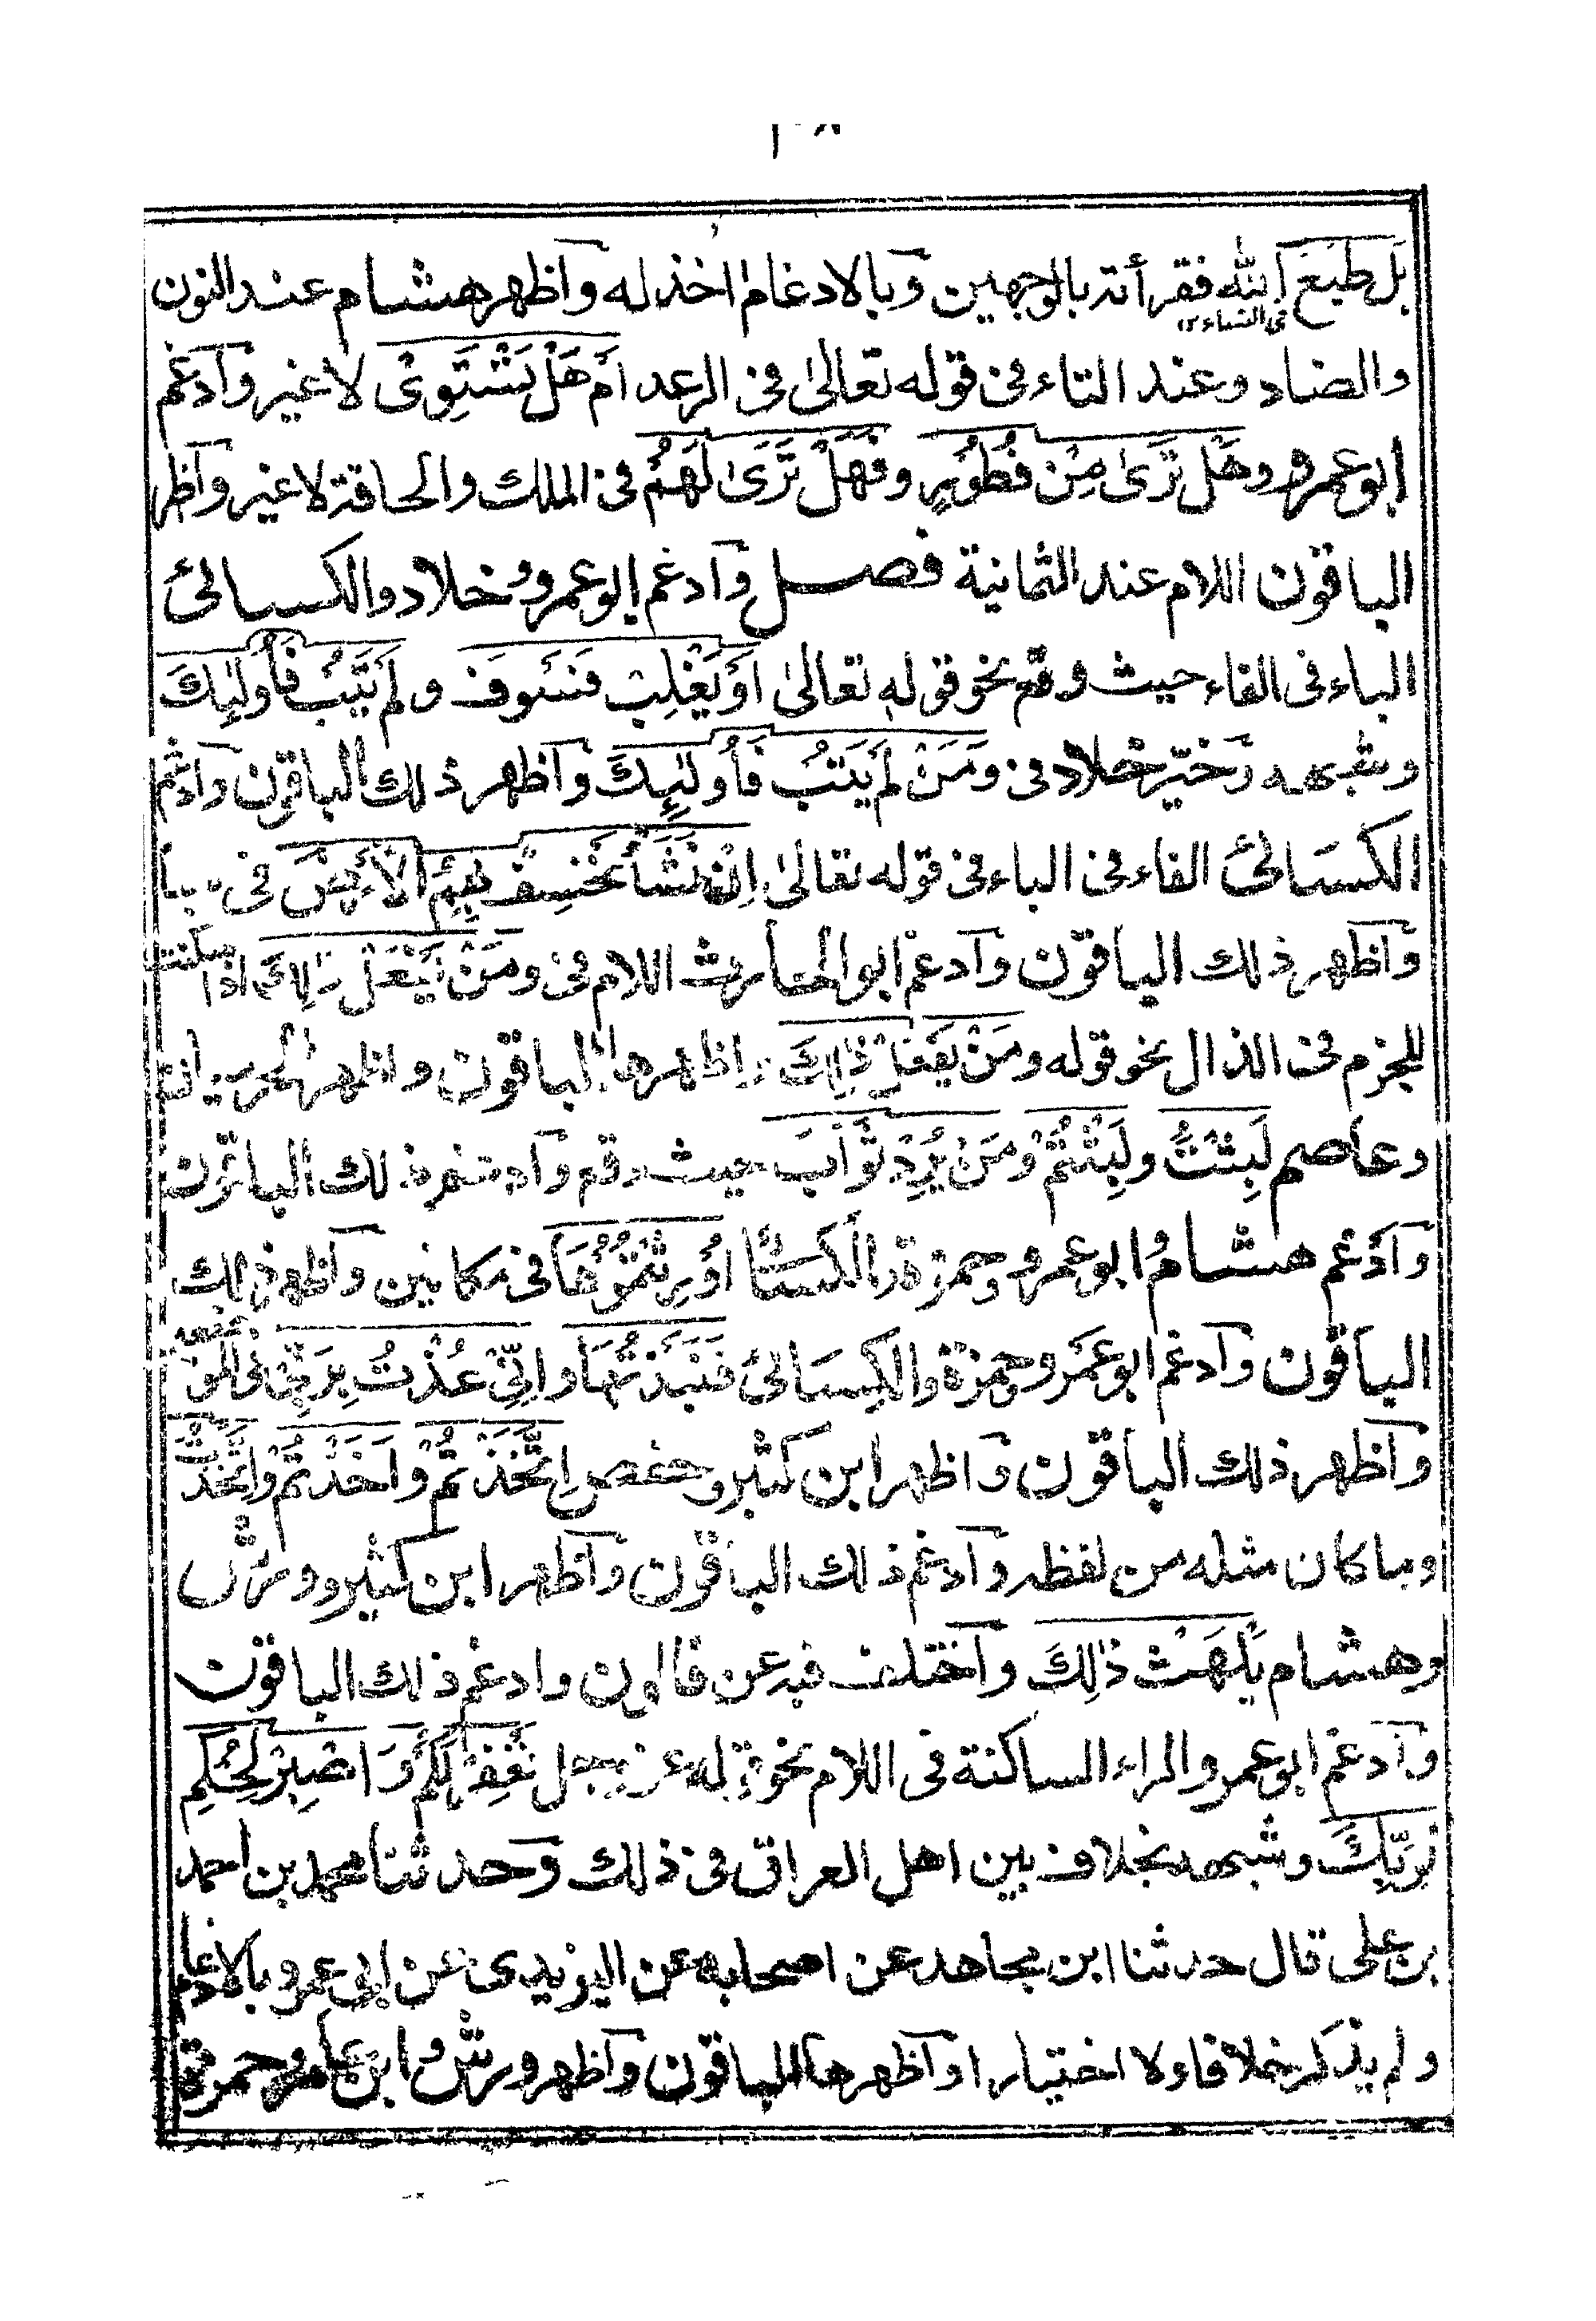 بل طبع الله فقرأته بالوجهين وبالادغام اخذ له واظهر هشام عند النون
فى النساء ١٢
والضاد وعند التاء فى قوله تعالىٰ فى الرعد اَم هَلْ تَسْتَوِىْ لا غير وادغم
ابو عمرو هَلْ تَرَىٰ مِنْ فُطُوْرٍ وفَهَلْ تَرَىٰ لَهُمْ فى الملك والحاقة لا غير واظهر
الباقون اللام عند الثمانية فصل وادغم ابو عمرو وخلاد والكسائى
الباء فى الفاء حيث وقع نحو قوله تعالىٰ اَوْ يَغْلِبْ فَسَوْفَ ولَمْ يَتُبْ فَاُولٰئِكَ
وشبهه وخيّر خلاد فى ومَنْ لَمْ يَتُبْ فَاُولٰئِكَ واظهر ذلك الباقون وادغم
الكسَائى الفاء فى الباء فى قوله تعالىٰ اِنْ نَشَأْ نَخْسِفْ بِهِمُ الْاَرْضَ فى سبا
واظهر ذلك الباقون وادغم ابو الحارث اللام فى ومَنْ يَفْعَلْ ذٰلِكَ اذا سكنت
للجزم فى الذال نحو قوله ومَنْ يَفْعَلْ ذٰلِكَ واظهرها الباقون واظهر الحرميان
وعاصم لَبِثْتُ ولَبِثْتُمْ ومَنْ يُرِدْ ثَوَابَ حيث وقع وادغم ذلك الباقون
وادغم هشام وابو عمرو وحمزة والكسائى اُوْرِثْتُمُوْهَا فى مكانين واظهر ذلك
الباقون وادغم ابو عمرو وحمزة والكِسَائى فَنَبَذْتُهَا واِنِّىْ عُذْتُ بِرَبِّىْ فى
واظهر ذلك الباقون واظهر ابن كثير وحفص اِتَّخَذْتُمْ واَخَذْتُمْ واِتَّخَذْتَ
وما كان مثله من لفظه وادغم ذلك الباقون واظهر ابن كثير وورش
وهشام يَلْهَثْ ذٰلِكَ واختلف فيه عن قالون وادغم ذلك الباقون
وادغم ابو عمرو الراء الساكنة فى اللام نحو قوله عز وجل نَغْفِرْ لَكُمْ وَاصْبِرْ لِحُكْمِ
رَبِّكَ وشبهه بخلاف بين اهل العراق فى ذلك وحدثنا محمد بن احمد
بن على قال حدثنا ابن مجاهد عن اصحابه عن اليزيدى عن ابى عمرو بالادغام
ولم يذكر خلافا ولا اختيارا واظهرها الباقون واظهر ورش وابن عامر وحمزة